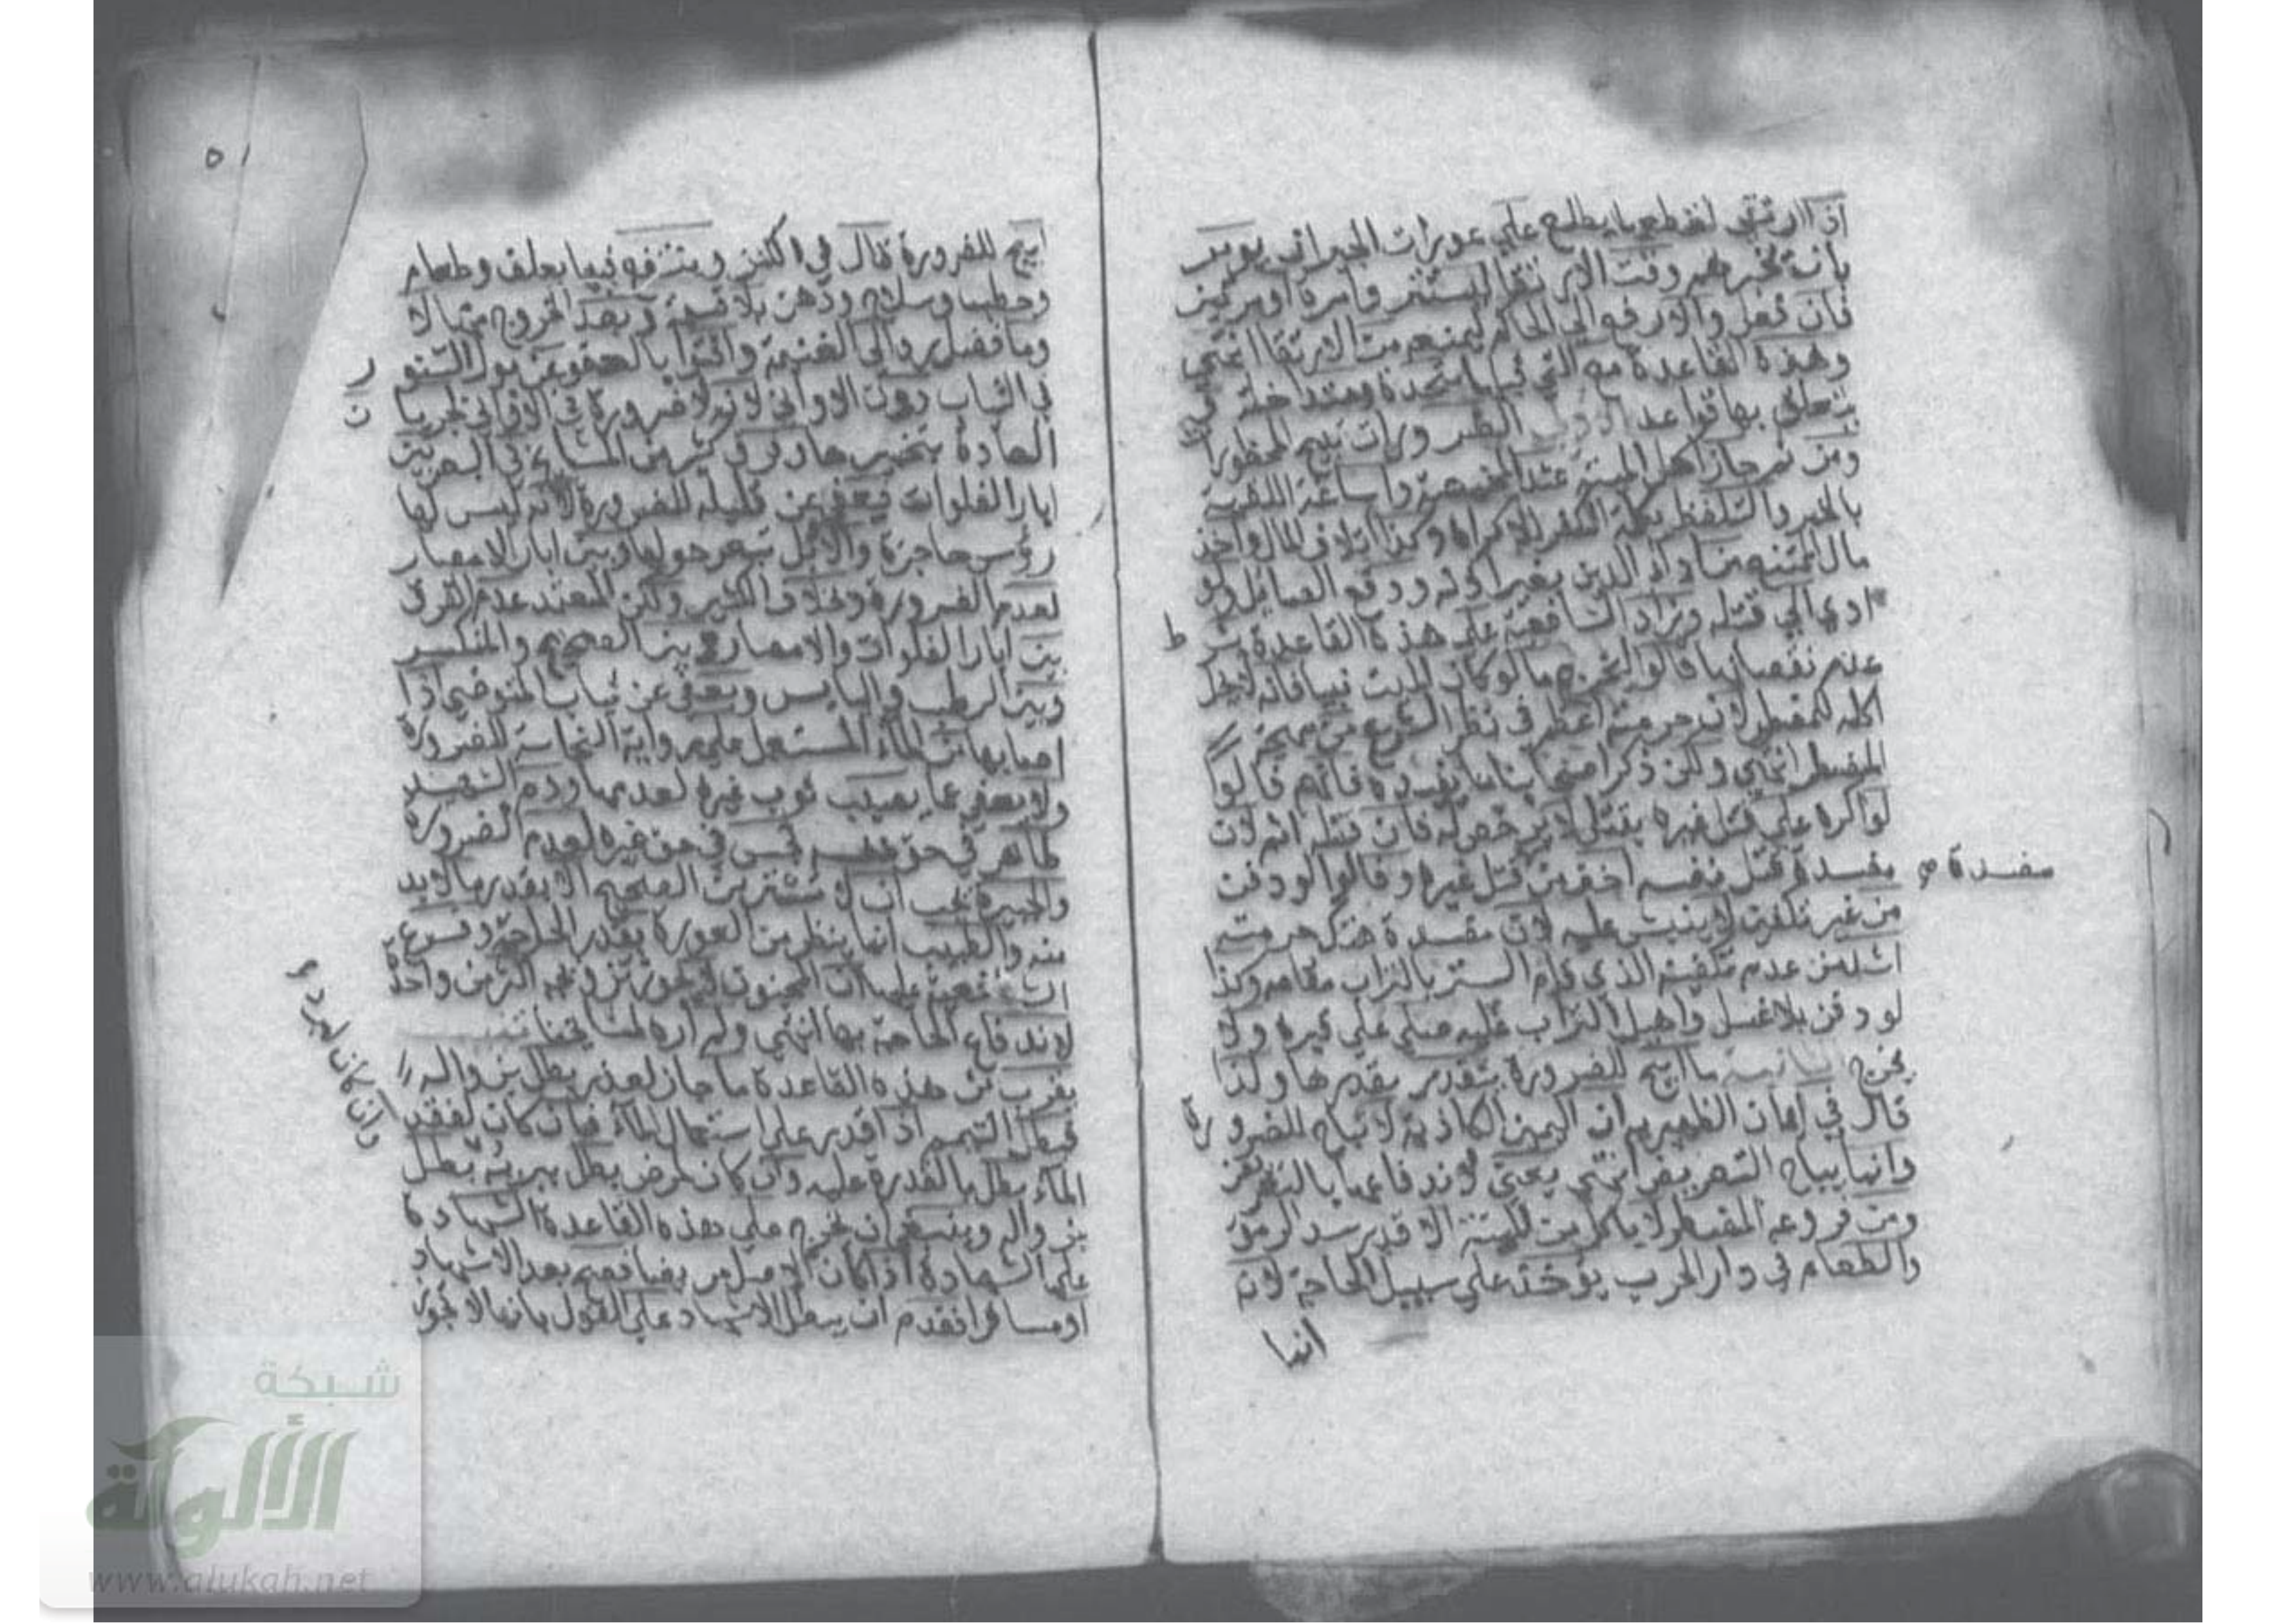 اذا ارتقي لقطعها يطلع علي عورات الجيران يومر
بانه يخبرهم وقت الارتقا ليستتر وامرة او مرتين
فان فعل والا رفع الي الحاكم ليمنعه من الارتقا انتهي
وهذه القاعدة مع التي قبلها متحدة ومتداخلة
يتعلق بها قواعد الاولي الضرورات تبيح المحظورا
ومن ثم جاز اكل الميتة عند المخمصة واساغة اللقمة
بالخمر والتلفظ بكلمة الكفر للاكراه وكذا اتلاف المال واخذ
مال الممتنع من اداء الدين بغير اذنه ودفع الصايل ولو
ادي الي قتله وزاد الشافعية علي هذه القاعدة بشر ط
عدم نقصانها قالوا ليخرج ما لو كان الميت نبيا فانه لا يحل
اكله للمضطر لان حرمته اعظم في نظر الشرع من مهجة
المضطر انتهي ولكن ذكر اصحابنا ما يفيده فانهم قالوا
لو اكره علي قتل غيره بقتل لا يرخص له فان قتله اثم لان
مفسدة قتل نفسه اخف من قتل غيره وقالوا لو دفن
مفسدة صح
من غير تكفين لا ينبش عليه لان مفسدة هتك حرمته
اشد من عدم تكفينه الذي قام الستر بالتراب مقامه وكذا
لو دفن بلا غسل واهيل التراب عليه صلي علي قبره ولا
يخرج الثانية ما ابيح للضرورة يتقدر بقدرها ولذا
قال في ايمان الظهيرية ان اليمين الكاذبة لا تباح للضرو رة
وانما يباح التعريض انتهي يعني لاندفاعها بالتعريض
ومن فروعه المضطر لا ياكل من الميتة الا قدر سد الرمق
والطعام في دار الحرب يؤخذ علي سبيل الحاجة لانه
انما
٥١
ابيح للضرورة قال في الكنز وينتفع فيها بعلف وطعام
وحطب وسلاح ودهن بلا قسمة وبعد الخروج منها لا
وما فضل رد الي الغنيمة وافتوا بالعفو عن بول السنو ر
في الثياب دون الاواني لانه لا ضرورة في الاواني لجريا ن
العادة بتخميرها وفرق كثير من المشايخ في البعر بين
ابار الفلوات فيعفي عن قليله للضرورة لانه ليس لها
رؤس حاجزة والابل تبعر حولها وبين ابار الامصار
لعدم الضرورة وخلاف الكثير ولكن المعتمد عدم الفرق
بين ابار الفلوات والامصار وبين الصحيح والمنكسر
وبين الرطب واليابس ويعفي عن ثياب المتوضي اذا
اصابها من الماء المستعمل علي رواية النجاسة للضرورة
ولا يعفي عما يصيب ثوب غيره لعدمها ودم الشهيد
طاهر في حق نفسه نجس في حق غيره لعدم الضرورة
والجبيرة يجب ان لا تستر من الصحيح الا بقدر ما لا بد
منه والطبيب انما ينظر من العورة بقدر الحاجة وفرع
الشافعية عليها ان المجنون لا يجوز تزويجه اكثر من واحدة
لاندفاع الحاجة بها انتهي ولم اره لمشايخنا
يقرب من هذه القاعدة ما جاز لعذر بطل بزواله
فبطل التيمم اذا قدر علي استعمال الماء فان كان لفقد
الماء بطل بالقدرة عليه وان كان لمرض بطل ببرئه بطل
وان كان لبرد
بزواله وينبغي ان تخرج علي هذه القاعدة الشهادة
علي الشهادة اذا كان الاصل مريضا فصح بعد الاشهاد
او مسافرا فقدم ان يبطل الاشهاد علي القول بانها لا تجوز
شبكة
الألوكة
www.alukah.net